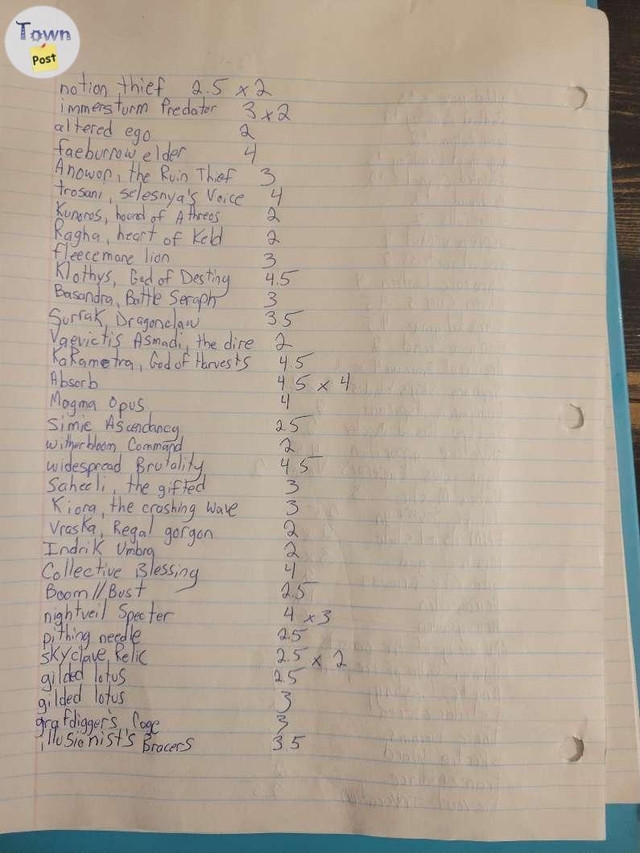 Town
Post
notion thief 2.5 x 2
immersturm Predator 3 x 2
altered ego 2
faeburrow elder 4
Anowon, the Ruin Thief 3
trosani, Selesnya's Voice 4
Kunoros, hound of Athreos 2
Ragha, heart of Keld 2
fleecemane lion 3
Klothys, God of Destiny 4.5
Basandra, Battle Seraph 3
Surrak, Dragonclaw 3.5
Vaevictis Asmadi, the dire 2
KaRametra, God of Harvests 4.5
Absorb 4.5 x 4
Magma Opus 4
Simic Ascendancy 2.5
witherbloom Command 2
widespread Brutality 4.5
Saheeli, the gifted 3
Kiora, the crashing wave 3
Vraska, Regal gorgon 2
Indrik Umbra 2
Collective Blessing 4
Boom//Bust 2.5
nightveil Specter 4 x 3
pithing needle 2.5
skyclave Relic 2.5 x 2
gilded lotus 2.5
gilded lotus 3
grafdigger's Cage 3
illusionist's Bracers 3.5